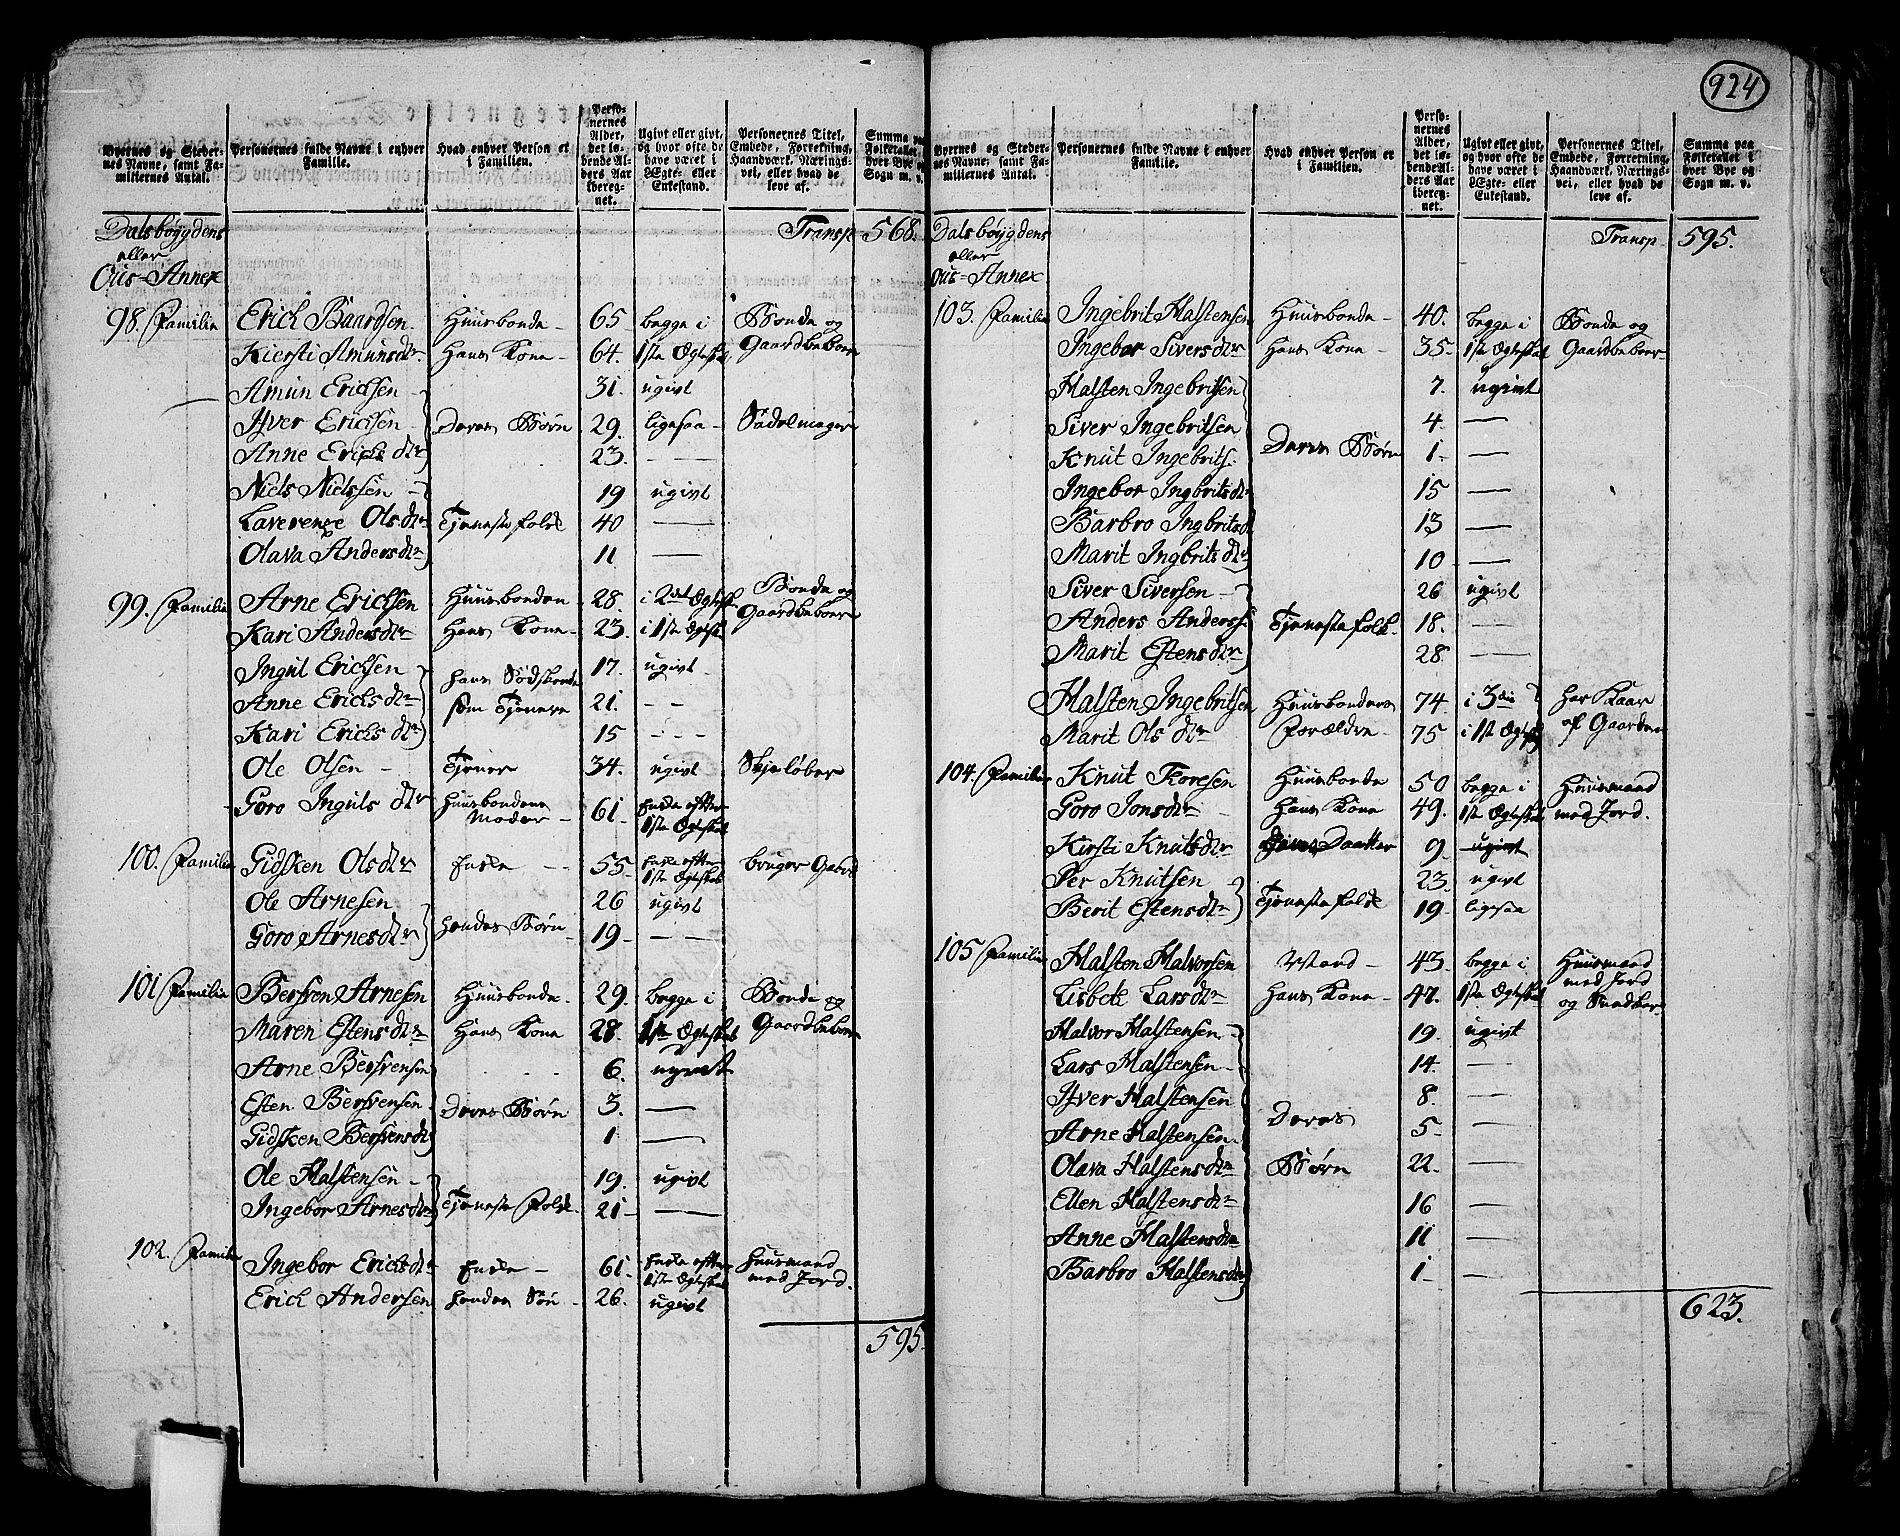 924
Byernes og Stedernes Navne, samt Familiernes Antal.
Personernes fulde Navne i enhver Familie.
Hvad enhver Person er i Familien.
Personernes Alder, det løbende Alders Aar iberegnet.
Ugivt eller givt, og hvor ofte de have været i Ægte- eller Enkestand.
Personernes Titel, Embede, Forretning, Haandværk, Næringsvei, eller hvad de leve af.
Summa paa Folketallet i hver Bye og Sogn m. v.
Dalsbøygdens Transp 568.
eller
Ous=Annex
98. Familie Erich Baardsen Huusbonde 65 begge i Bonde og
Kiersti Amunsdtr Hans Kone 64. 1ste Ægteskab Gaardbeboer
Amun Erichsen 31. ugivt
Ifver Erichsen Deres Børn 29. ligesaa Sadelmager
Anne Erichsdtr 23. —
Niels Nielssen 19 ugivt
Laverenze Olsdtr Tjenestefolk 40 —
Olava Andersdtr 11 —
99. Familie Arne Erichsen Huusbonden 28. i 2det Ægtesk. Bonde og
Kari Andersdtr Hans Kone 23. i 1ste Ægtesk. Gaardbeboer
Ingul Erichsen hans Sødskende 17. ugivt
Anne Erichsdtr som Tjenere 21. —
Kari Erichsdtr 15 —
Ole Olsen Tjener 34. ugivt Skieløber
Goro Ingulsdtr Huusbondens Moder 61. Enke efter 1ste Ægteskab
100. Familie Gidsken Olsdtr Enke 55 Enke efter 1ste Ægteskab bruger Gaard
Ole Arnesen 26 ugivt
Goro Arnesdtr hendes Børn 19 —
101 Familie Bersven Arnesen Huusbonde 29. begge i Bonde og
Maren Estensdtr Hans Kone 28. 1ste Ægteskab Gaardbeboer
Arne Bersvensen 6. ugivt
Esten Bersvensen Deres Børn 3. —
Gidsken Bersvensdtr 1 —
Ole Halstensen 19. ugivt
Ingebor Arnesdtr Tjeneste Folk 21 —
102. Familie Ingebor Erichsdtr Enke 61 Enke efter 1ste Ægteskab Huusmand med Jord.
Erich Andersen hendes Søn 26. ugivt
595
Byernes og Stedernes Navne, samt Familiernes Antal.
Personernes fulde Navne i enhver Familie.
Hvad enhver Person er i Familien.
Personernes Alder, det løbende Alders Aar iberegnet.
Ugivt eller givt, og hvor ofte de have været i Ægte- eller Enkestand.
Personernes Titel, Embede, Forretning, Haandværk, Næringsvei, eller hvad de leve af.
Summa paa Folketallet i hver Bye og Sogn m. v.
Dalsbøygdens Transp 595.
eller
Ous=Annex
103. Familie Ingebrit Halstensen Huusbonde 40. begge i Bonde og
Ingebor Siversdtr Hans Kone 35 1ste Ægteskab Gaardbeboer
Halsten Ingebritsen 7. ugivt
Siver Ingebritsen 4 —
Knut Ingebrits. Deres Børn 1 —
Ingebor Ingbritsdtr 15 —
Barbro Ingbritsd 13 —
Marit Ingbritsdtr 10 —
Siver Siversen 26 ugivt
Anders Anderss Tjenestefolk 18. —
Marit Estensdtr 28. —
Halsten Ingebritsen Huusbondens 74 i 3die har Kaar
Marit Olsdtr Forældre 75 i 1ste Ægtesk af Gaarden
104. Familie Knut Toresen Huusbonde 50 begge i Huusmand
Goro Jonsdtr Hans Kone 49. 1ste Ægteskab med Jord.
Kirsti Knutsdtr Deres Daatter 9 ugivt
Per Knutsen 23. ugivt
Berit Estensdtr Tjenestefolk 19. ligesaa
105 Familie Halsten Halvorsen Mand 43. begge i Huusmand
Lisbet Larsdtr Hans Kone 47. 1ste Ægteskab med Jord og
Halvor Halstensen 19. ugivt
Lars Halstensen 14 —
Ifver Halstensen 8. —
Arne Halstensen Deres 5 —
Olava Halstensdtr Børn 22. —
Ellen Halstensdtr 16 —
Anne Halstensdtr 11 —
Barbro Halstensdtr 1 —
623.